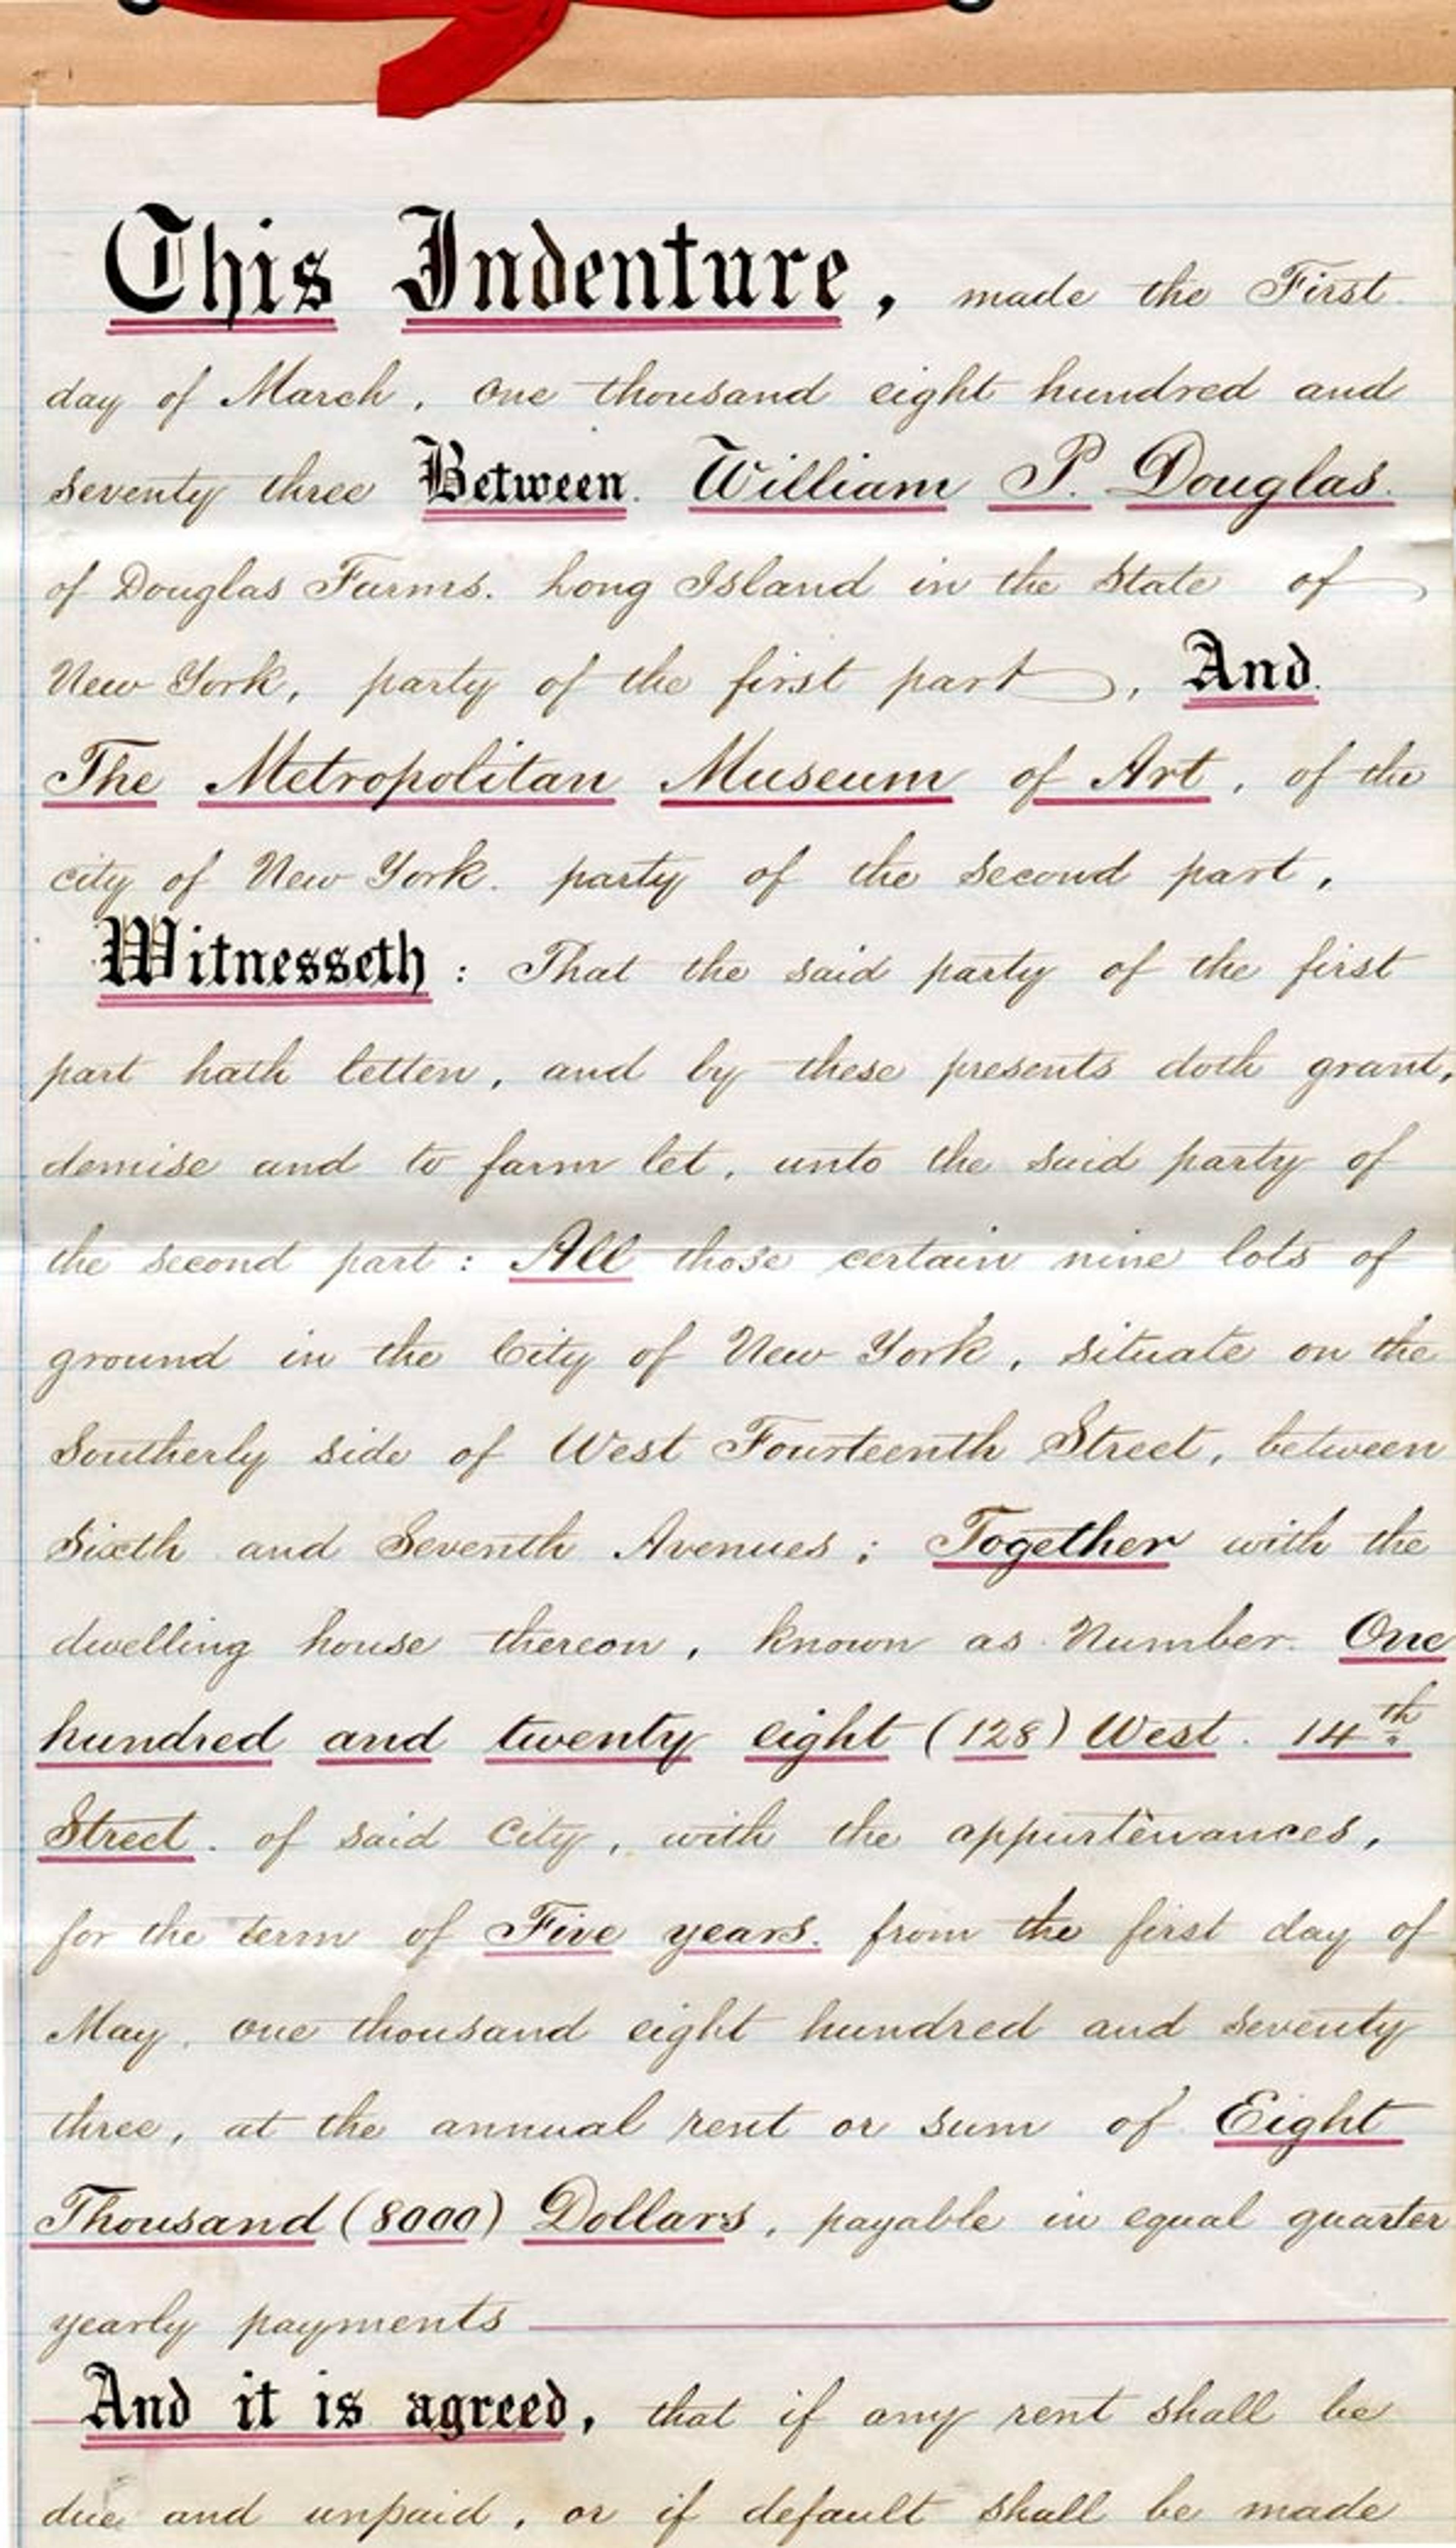 This Indenture, made the First
day of March, one thousand eight hundred and
seventy three Between. William P. Douglas.
of Douglas Farms. Long Island in the State of
New York, party of the first part, And.
The Metropolitan Museum of Art, of the
city of New York. party of the second part,
Witnesseth: That the said party of the first
part hath letten, and by these presents doth grant,
demise and to farm let, unto the said party of
the second part: All those certain nine lots of
ground in the City of New York, situate on the
Southerly side of West Fourteenth Street, between
Sixth and Seventh Avenues; Together with the
dwelling house thereon, known as Number. One
hundred and twenty eight (128) West. 14th
Street. of said City, with the appurtenances,
for the term of Five years. from the first day of
May, one thousand eight hundred and seventy
three, at the annual rent or sum of Eight
Thousand (8000) Dollars, payable in equal quarter
yearly payments
And it is agreed, that if any rent shall be
due and unpaid, or if default shall be made